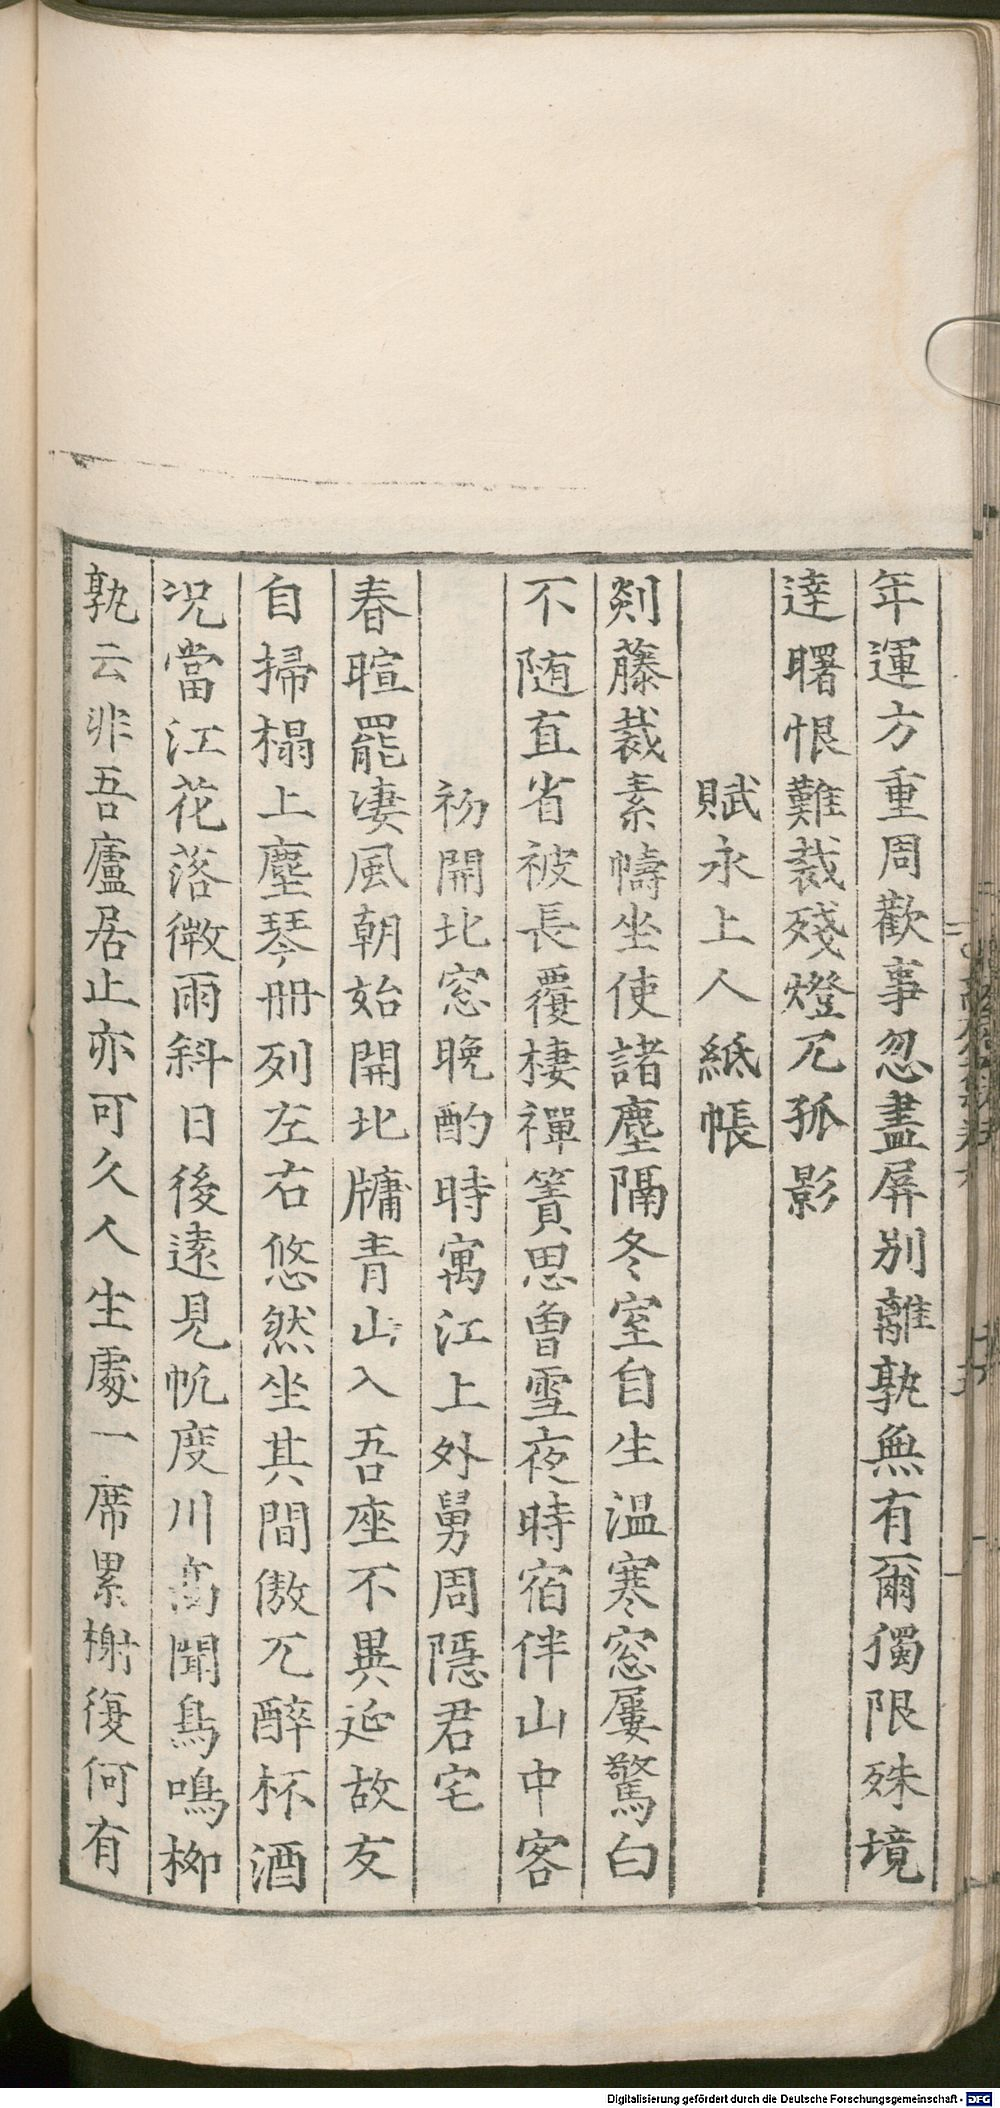 年運方重周歡事忽盡屏別離孰無有爾獨限殊境
達曙恨難裁殘燈兀孤影
賦永上人紙帳
剡藤裁素幬坐使諸塵隔冬室自生溫寒窓屢驚白
不随直省被長覆棲禪簀思曾雪夜時宿伴山中客
初開北窓晚酌時寓江上外舅周隱君宅
春暄罷凄風朝始開北牗青山入吾座不異延故友
自掃榻上塵琴册列左右悠然坐其間傲兀醉杯酒
况當江花落微雨斜日後遠見帆度川高聞鳥鳴柳
孰云非吾廬居止亦可久人生處一席累榭復何有
Digitalisierung gefördert durch die Deutsche Forschungsgemeinschaft - DFG